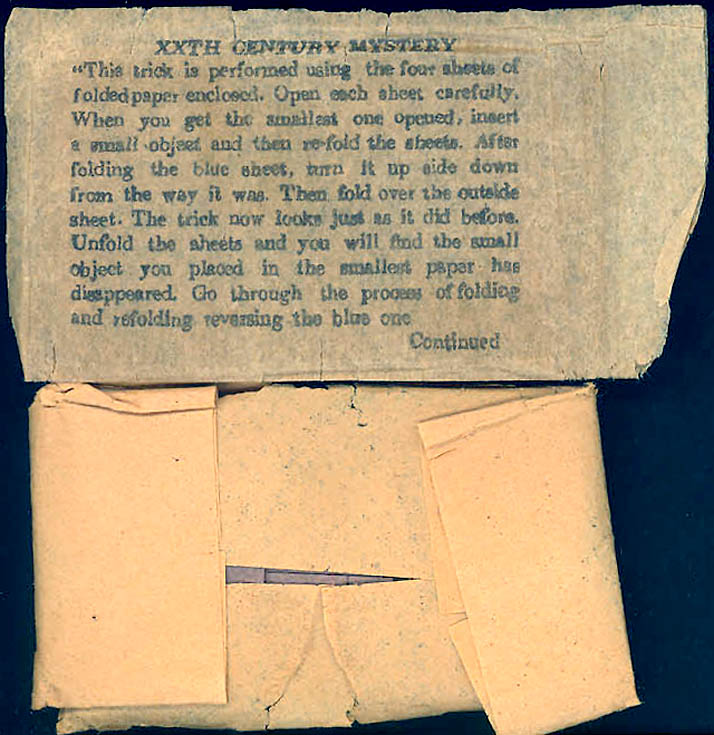 XXTH CENTURY MYSTERY
"This trick is performed using the four sheets of
folded paper enclosed. Open each sheet carefully.
When you get the smallest one opened, insert
a small object and then re-fold the sheets. After
folding the blue sheet, turn it up side down
from the way it was. Then fold over the outside
sheet. The trick now looks just as it did before.
Unfold the sheets and you will find the small
object you placed in the smallest paper has
disappeared. Go through the process of folding
and refolding reversing the blue one
Continued